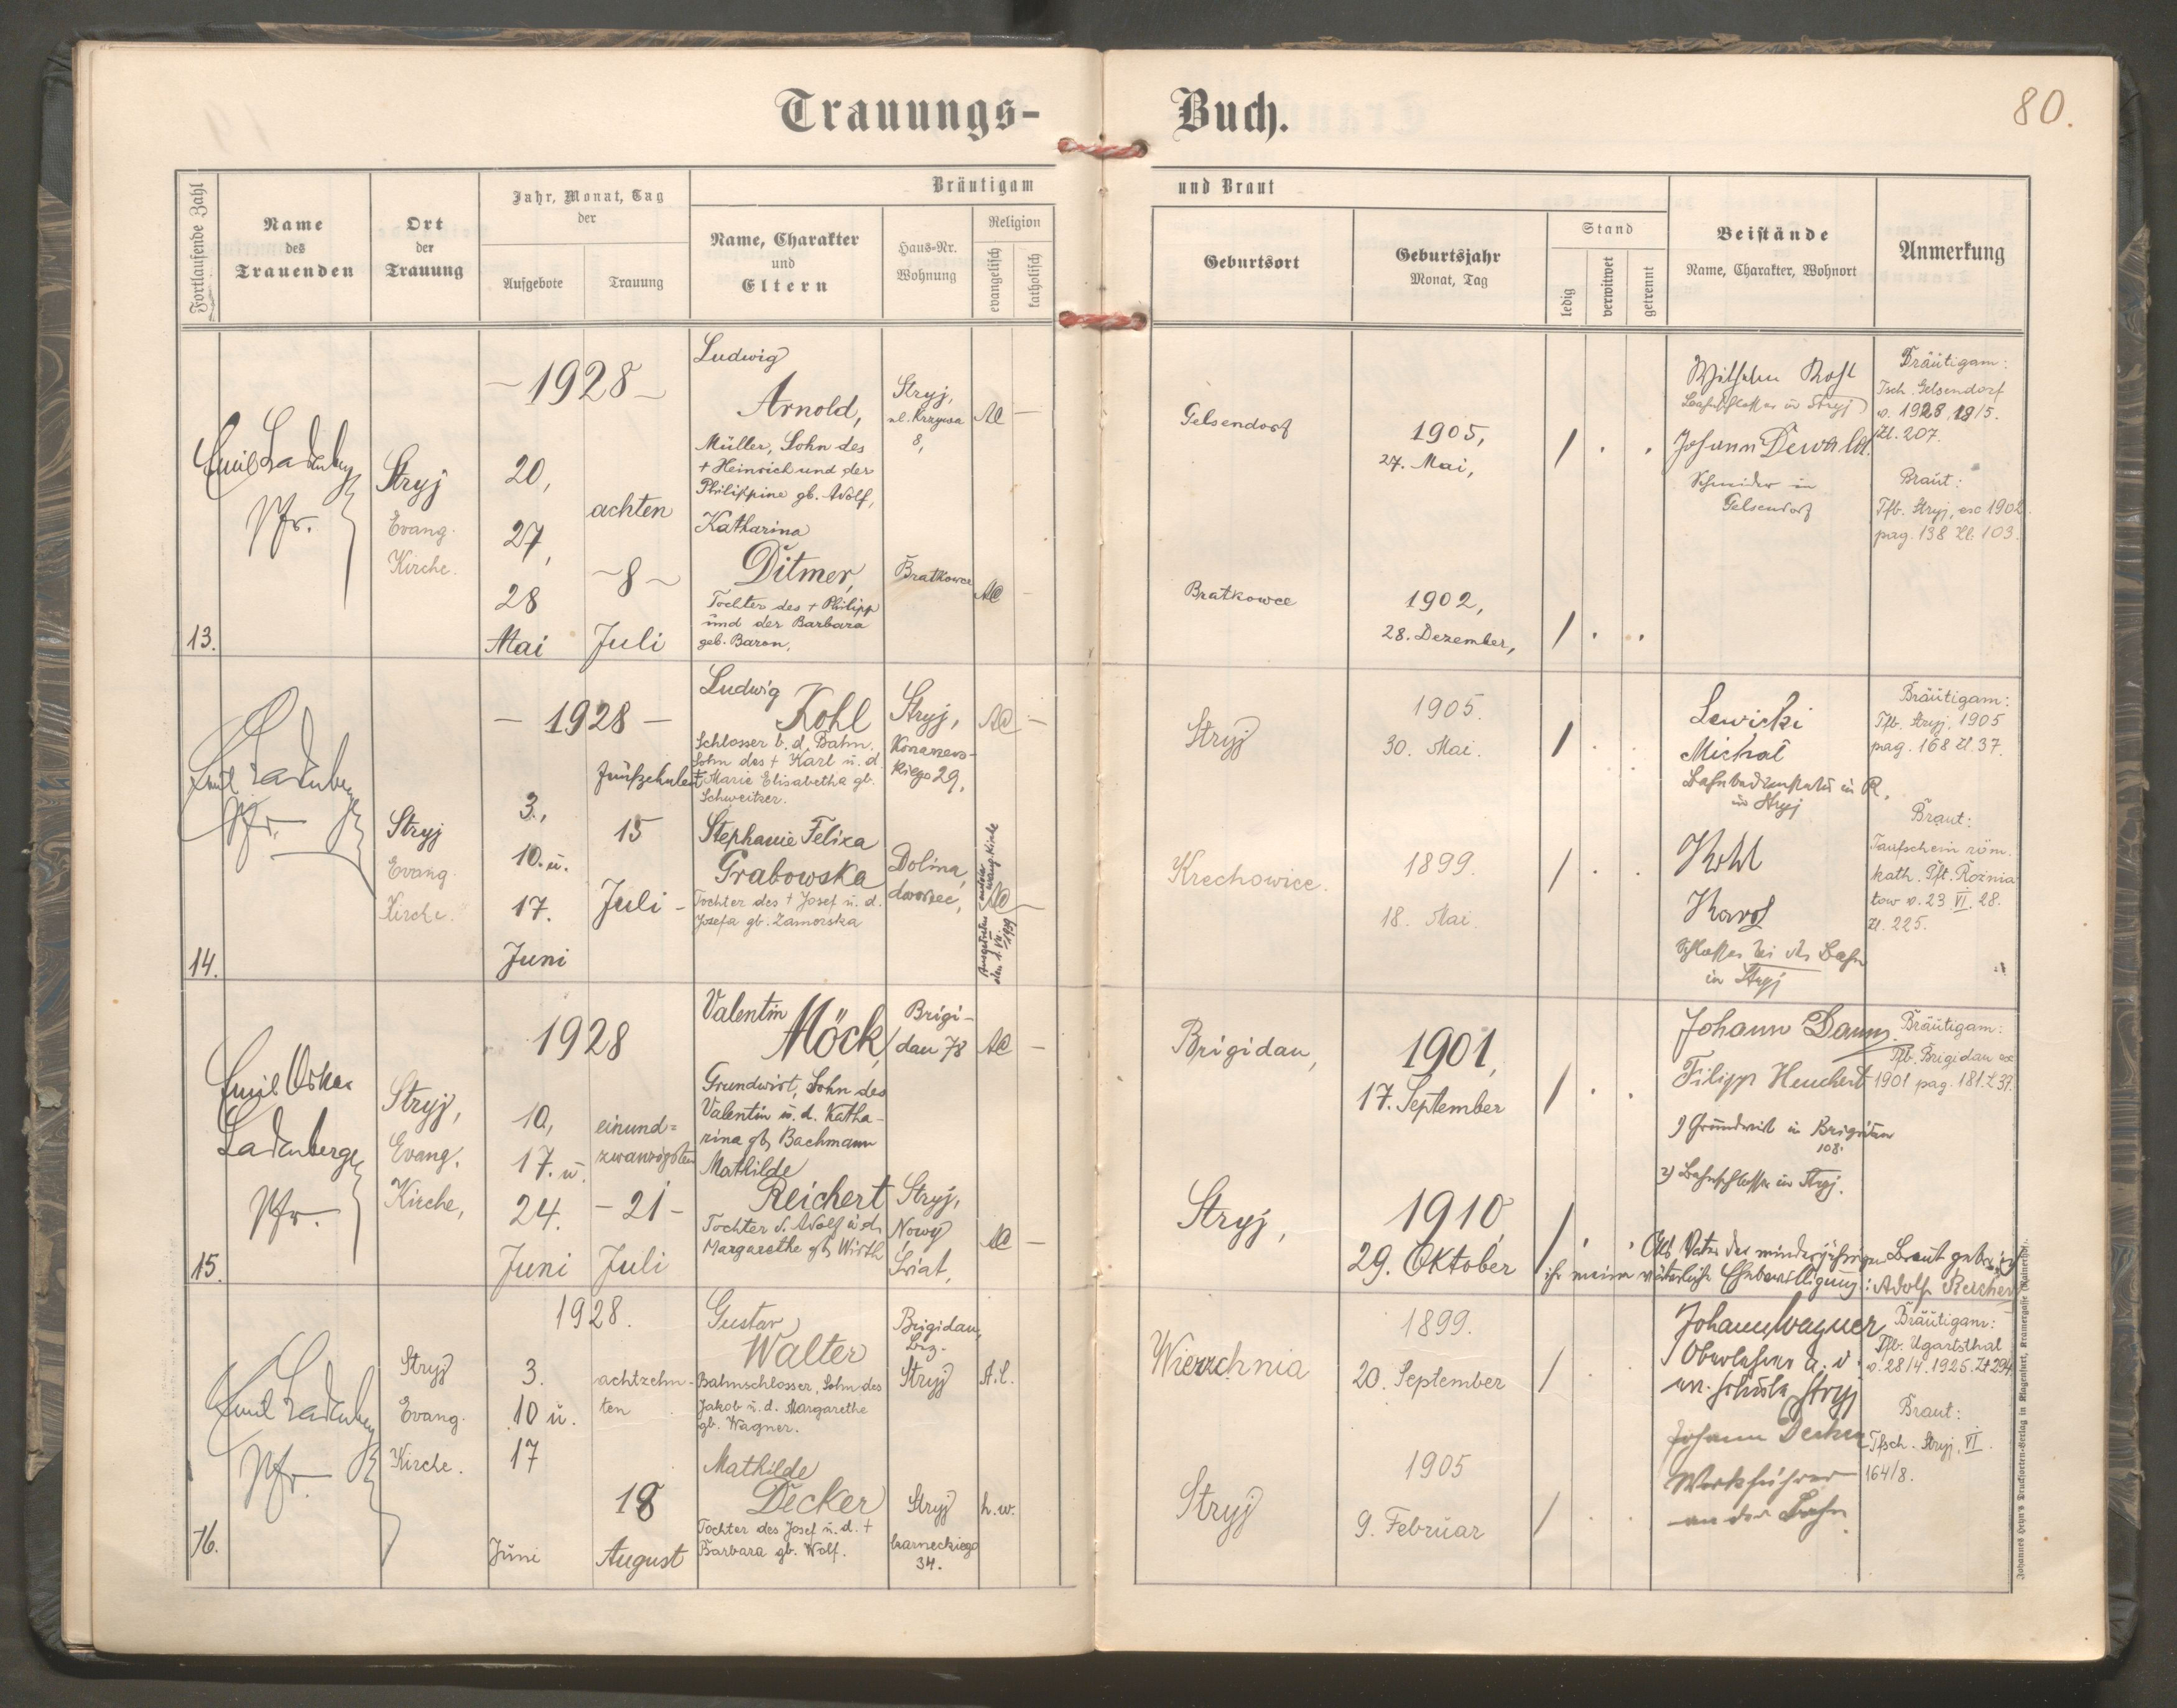 Trauungs-Buch.
80.
Fortlaufende Zahl
Name
des
Trauenden
Ort
der
Trauung
Jahr, Monat, Tag
der
Aufgebote
Trauung
Bräutigam
und Braut
Name, Charakter
und
Eltern
Haus-Nr.
Wohnung
Religion
evangelisch
katholisch
Geburtsort
Geburtsjahr
Monat, Tag
Stand
ledig
verwitwet
getrennt
Beistände
Name, Charakter, Wohnort
Anmerkung
13.
Pfr.
Stryj
Evang.
Kirche.
– 1928 –
20,
27,
28
Mai
achten
– 8 –
Juli
Ludwig
Arnold,
Müller, Sohn des
+ Heinrich und der
Philippine gb. Adolf,
Katharina
Ditmer,
Tochter des + Philipp
und der Barbara
geb. Baron,
Stryj,
ul. Krzywa
8,
AC –
Bratkowce
AC -
Gelsendorf
1905,
27. Mai,
/ . .
Bratkowce
1902,
28. Dezember,
/ . .
Bahnschlosser in Stryj
Johann Dewald
Schneider in
Gelsendorf
Bräutigam:
Tsch. Gelsendorf
v. 1928 18/5.
Zl. 207.
Braut:
Tfb. Stryj, exc 1902
pag. 138 Zl. 103.
14.
Emil Ladenberger
Pfr.
Stryj
Evang.
Kirche.
– 1928 –
3.,
10. u.
17.
Juni
fünfzehnten
15
Juli –
Ludwig
Kohl
Schlosser b. d. Bahn.
Sohn des + Karl u. d.
+ Marie Elisabetha gb.
Schweitzer.
Stephanie Felixa
Grabowska
Tochter des + Josef u. d.
Josefa gb. Zamorska
Stryj,
Konarzews-
kiego 29,
AC –
Dolina,
dworzec,
AC –
Stryj
1905.
30. Mai.
/ . .
Krechowice.
1899.
18. Mai.
/ . .
Lewicki
Michał
in Stryj
Kohl
Karol
Schlosser bei der Bahn
in Stryj
Bräutigam:
Tfb. Stryj. 1905
pag. 168 Zl. 37.
Braut:
Taufschein röm.
kath. Pft. Rożnia
tow v. 23 VI. 28.
Zl. 225.
15.
Emil Oskar
Ladenberger
Pfr.
Stryj,
Evang.
Kirche,
1928
10,
17. u.
24.
Juni
einund=
zwanzigsten
– 21 –
Juli
Valentin
Möck,
Grundwirt, Sohn des
Valentin u. d. Katha-
rina gb. Bachmann
Mathilde
Reichert
Tochter d. Adolf u. d.
Margarethe gb. Wirth
Brigi-
dau 78
AC –
Stryj,
Nowy
Świat,
AC –
Brigidau,
1901,
17. September
/ . .
Stryj,
1910,
29. Oktober
/ . .
Johann Daum
Filipp Heuchert
1) Grundwirt in Brigidau
108.
2) Bahnschlosser in Stryj.
Als Vater der minderjährigen Braut gebe ich
ihr meine väterliche Ehebewilligung: Adolf Reichert
Bräutigam:
Tfb. Brigidau ex
1901 pag. 181. Z 37.
16.
Emil Ladenberger
Pfr.
Stryj
Evang.
Kirche.
1928.
3.
10 u.
17
Juni
achtzehn-
ten
18
August
Gustav
Walter
Bahnschlosser, Sohn des
Jakob u. d. Margarethe
gb. Wagner.
Mathilde
Decker
Tochter des Josef u. d. +
Barbara gb. Wolf.
Brigidau,
Bez.
Stryj
A. C.
Stryj
Czarneckiego
34.
h. w.
Wierzchnia
1899.
20. September
/ .
Stryj
1905
9. Februar
/ . .
Johann Wagner
Oberlehrer a. d.
ev. Schule Stryj
Johann Decker
Werkführer
an der Bahn
Bräutigam:
Tfb. Ugartsthal
v. 28/4. 1925. Zl 294
Braut:
Tfsch. Stryj, VI.
164/8.
Johannes Heyn's Drucksorten-Verlag in Klagenfurt, Kramergasse (Rainerhof).